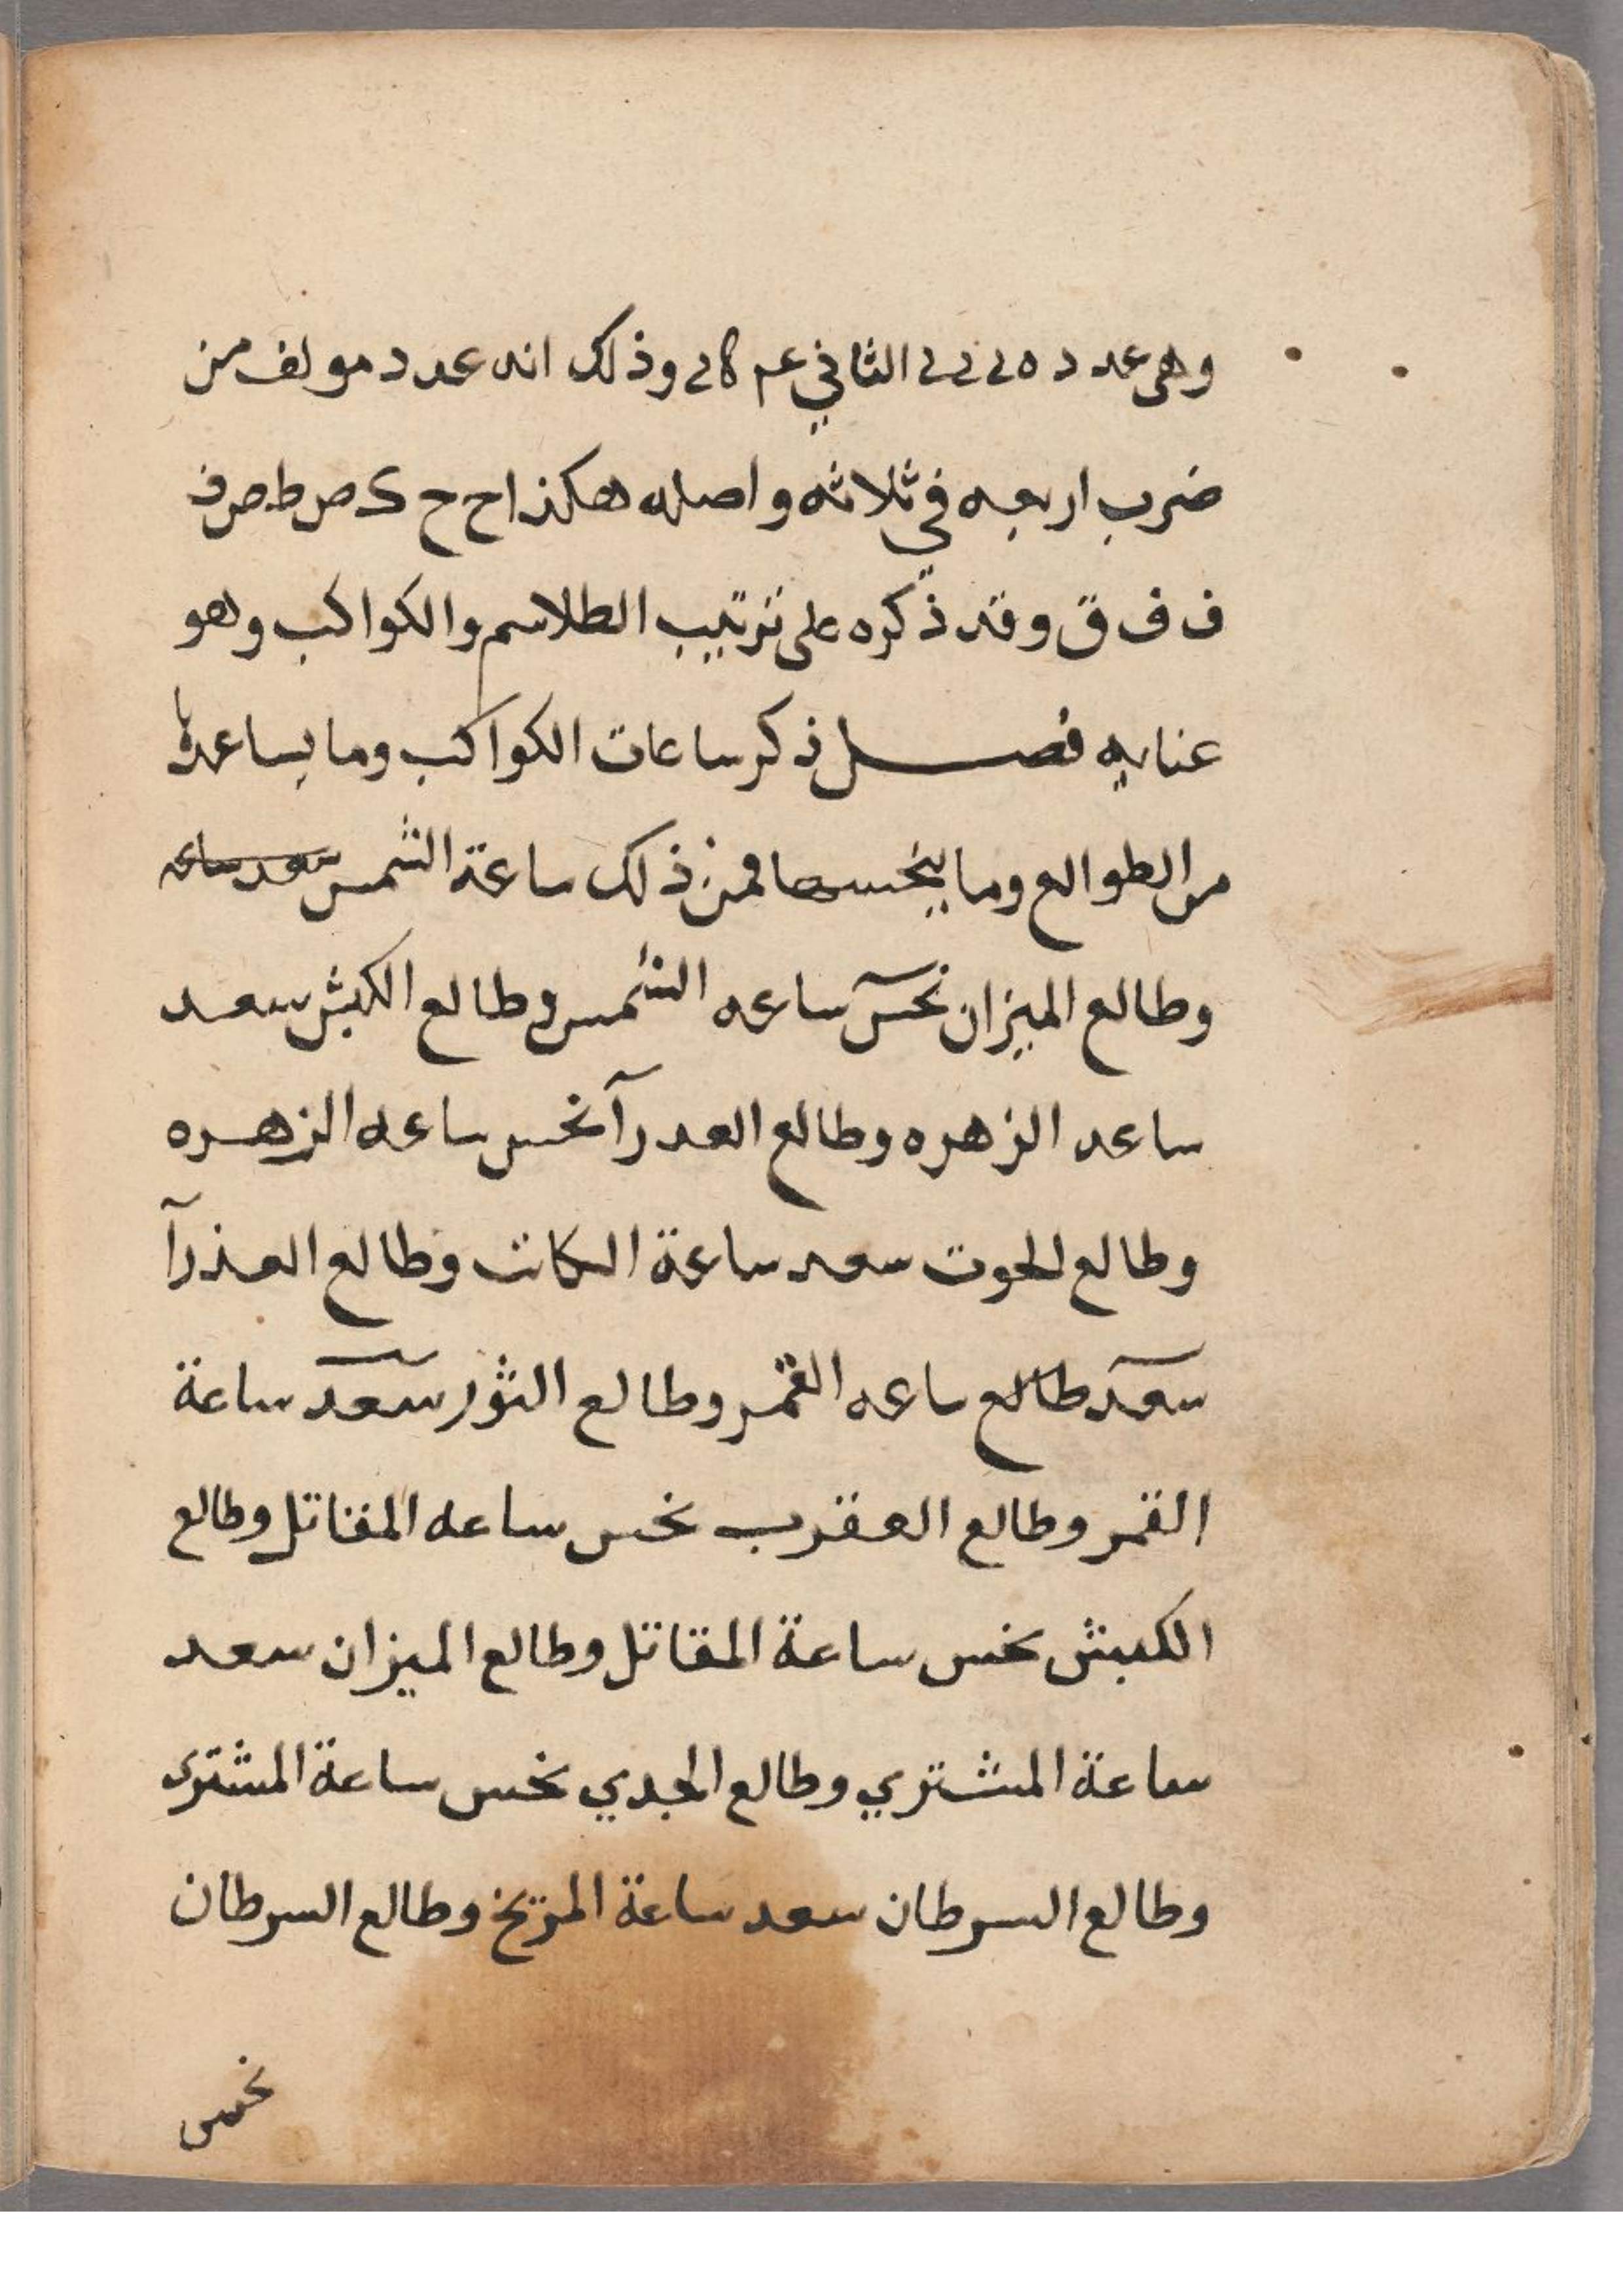 وهى عدد د ه الثاني عم وذلك انه عدد مولف من
ضرب اربعه في ثلاثه واصله هكذا ح ح ك ص ط ص ف
ف ف ق وقد ذكره على ترتيب الطلاسم والكواكب وهو
عنايه فصل ذكر ساعات الكواكب وما يساعدها
من الطوالع وما ينحسها فمن ذلك ساعة الشمس سعد ساعه
وطالع الميزان نحس ساعه الشمس وطالع الكبش سعد
ساعه الزهره وطالع العدرآ نحس ساعه الزهره
وطالع الحوت سعد ساعة الكاتب وطالع العذرآ
سعد طالع ساعه القمر وطالع الثور سعد ساعة
القمر وطالع العقرب نحس ساعه المقاتل وطالع
الكبش نحس ساعة المقاتل وطالع الميزان سعد
ساعة المشتري وطالع الجدي نحس ساعة المشترى
وطالع السرطان سعد ساعة المريخ وطالع السرطان
نحس